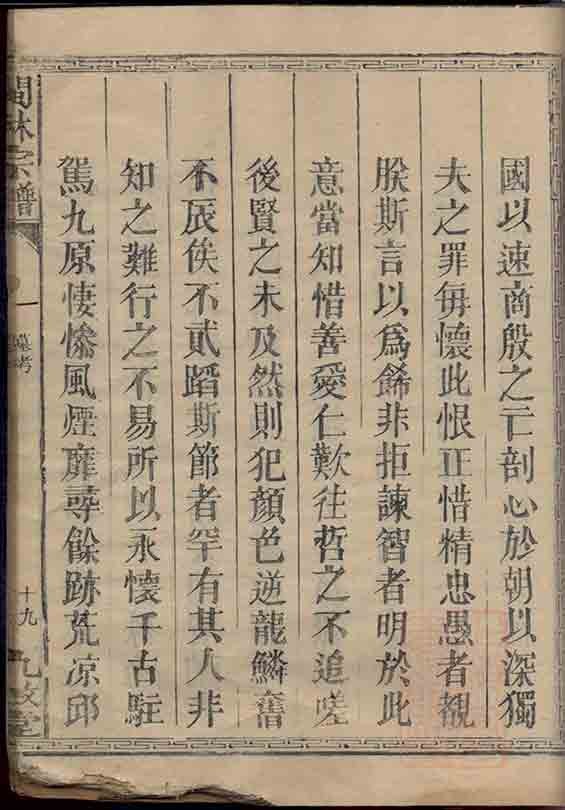 國以速商殷之亡剖心於朝以深獨
夫之罪每懷此恨正惜精忠愚者覩
朕斯言以爲餙非拒諫智者明於此
意當知惜善愛仁歎往哲之不追嗟
後賢之未及然則犯顔色逆龍鱗奮
不辰俟不貳蹈斯節者罕有其人非
知之難行之不易所以永懷千古駐
駕九原悽慘風煙靡尋餘跡荒凉邱
林宗譜
墓考
十九
九牧堂